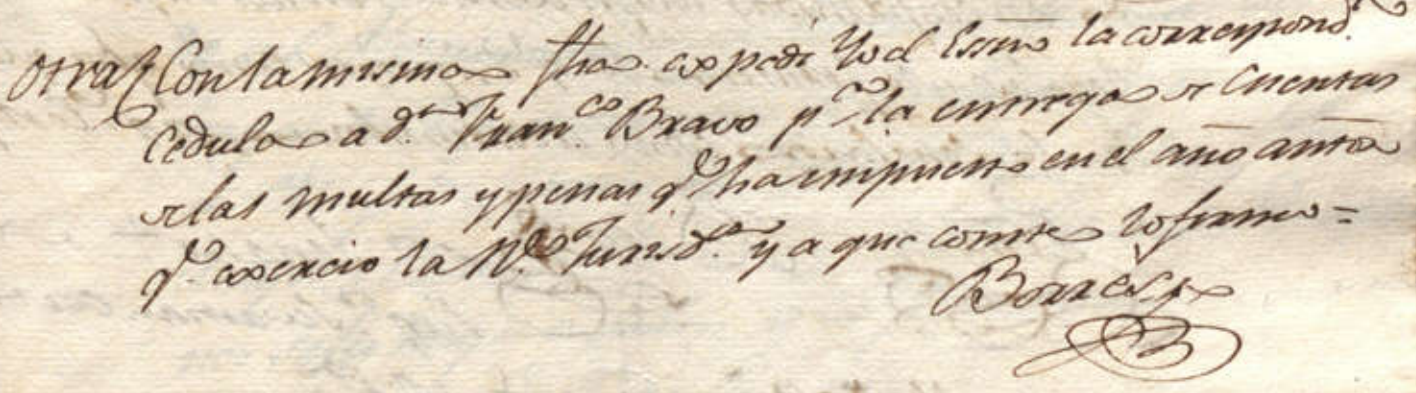 Otra} Con la misma fha. expedi Yo el Essno la correspond.te
Cedula a d.n Fran.co Bravo p.a la entrega de Cuentas
de las multas y penas q.e ha impuesto en el año antr.
q.e exercio la R.l Jurisd.n y a que conste lo firmo=
Borrès